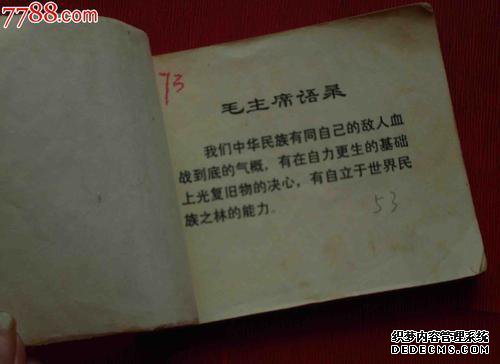 7788.com
73
毛主席语录
我们中华民族有同自己的敌人血
战到底的气概，有在自力更生的基础
上光复旧物的决心，有自立于世界民
族之林的能力。
53
织梦内容管理系统
DEDECMS.COM